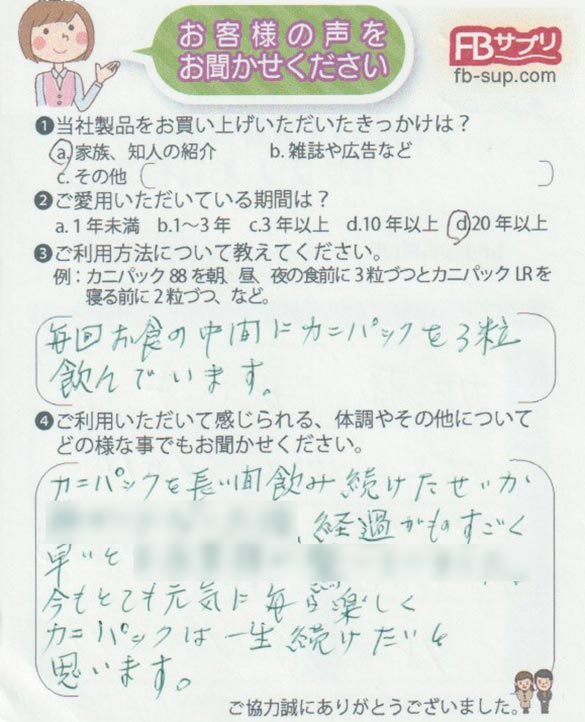 お客様の声を
お聞かせください
FBサプリ
fb-sup.com
❶当社製品をお買い上げいただいたきっかけは？
a.家族、知人の紹介 b.雑誌や広告など
c.その他
❷ご愛用いただいている期間は？
a.1年未満 b.1〜3年 c.3年以上 d.10年以上 d.20年以上
❸ご利用方法について教えてください。
例：カニパック88を朝、昼、夜の食前に3粒づつとカニパックLRを
寝る前に2粒づつ、など。
毎回お食の中間にカニパックを3粒
飲んでいます。
❹ご利用いただいて感じられる、体調やその他について
どの様な事でもお聞かせください。
カニパックを長い間飲み続けたせいか
、経過がものすごく
早いと
今もとても元気に毎日楽しく
カニパックは一生続けたいと
思います。
ご協力誠にありがとうございました。